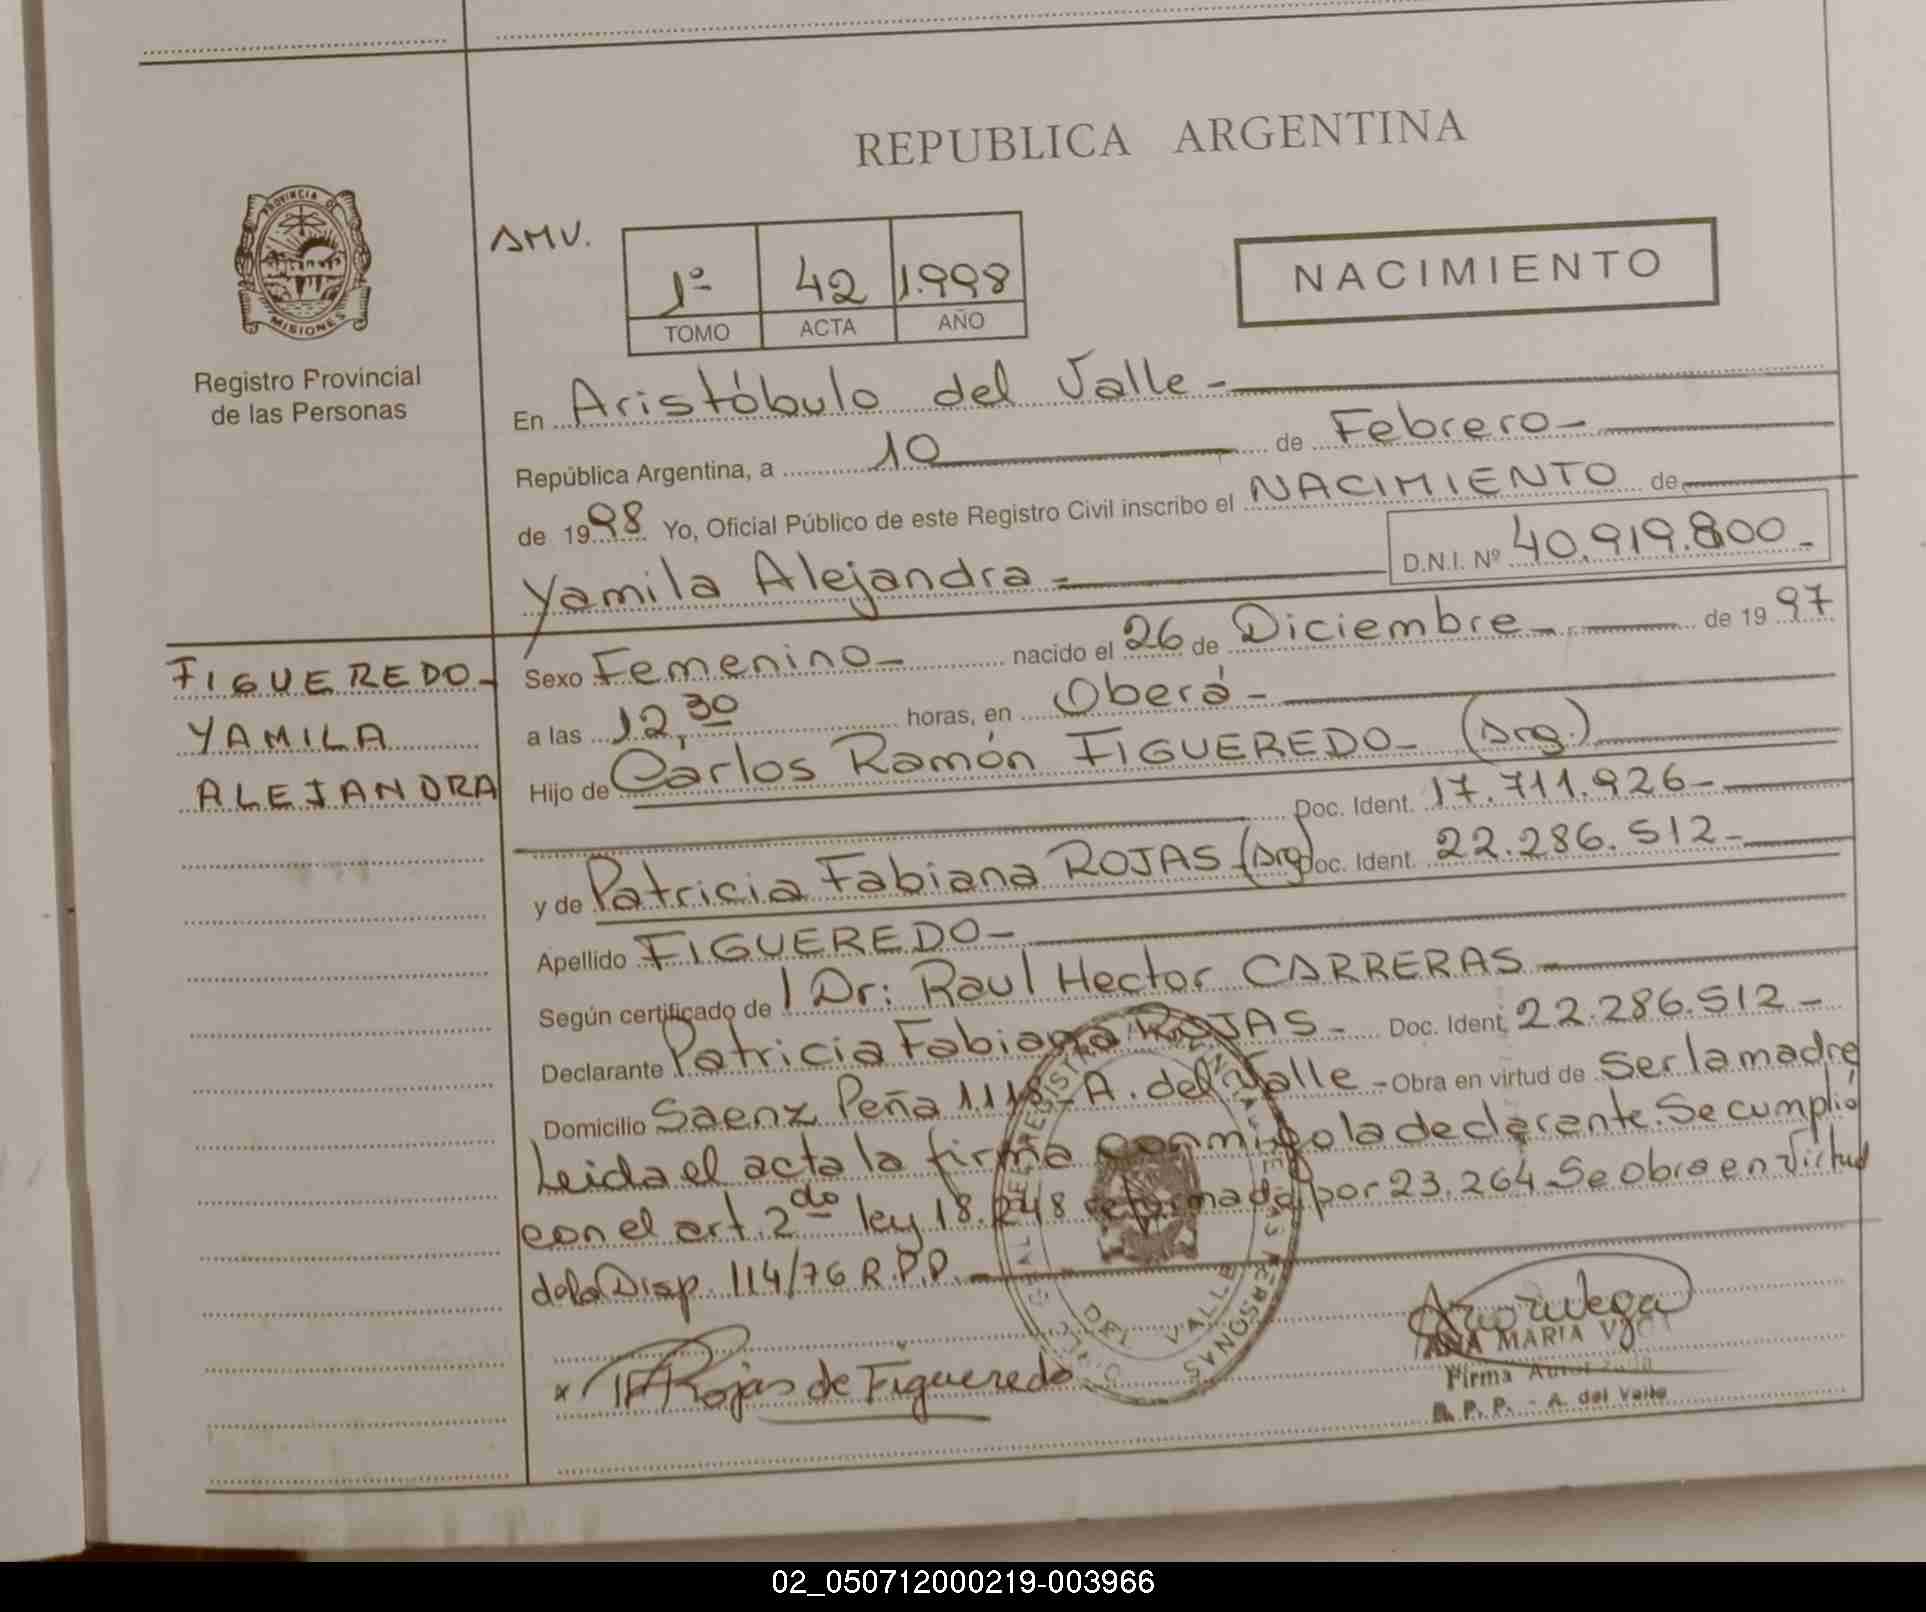 REPUBLICA ARGENTINA
PROVINCIA D
MISIONES
Registro Provincial
de las Personas
AMV.
1º 42 1.998
TOMO ACTA AÑO
NACIMIENTO
En Aristóbulo del Valle -
República Argentina, a 10 de Febrero -
de 1998 Yo, Oficial Público de este Registro Civil inscribo el NACIMIENTO de
Yamila Alejandra = D.N.I. Nº 40.919.800 -
FIGUEREDO -
YAMILA
ALEJANDRA
Sexo Femenino - nacido el 26 de Diciembre - de 1997
a las 12,30 horas, en Oberá -
Hijo de Carlos Ramón FIGUEREDO - (Arg.)
Doc. Ident. 17.711.926 -
y de Patricia Fabiana ROJAS (Arg) Doc. Ident. 22.286.512 -
Apellido FIGUEREDO -
Según certificado de l Dr: Raul Hector CARRERAS -
Declarante Patricia Fabiana ROJAS - Doc. Ident. 22.286.512 -
Domicilio Saenz Peña 1.118 - A. del Valle - Obra en virtud de Ser la madre
Leida el acta la firma conmigo la declarente. Se cumplió
con el art. 2do ley 18.248 reformada por 23.264. Se obra en virtud
de la Disp. 114/76 R.P.P. -
DEL VALLE
PERSONAS
x Rojas de Figueredo
ANA MARIA
Firma
R. P. P. - A. del Valle
02_050712000219-003966